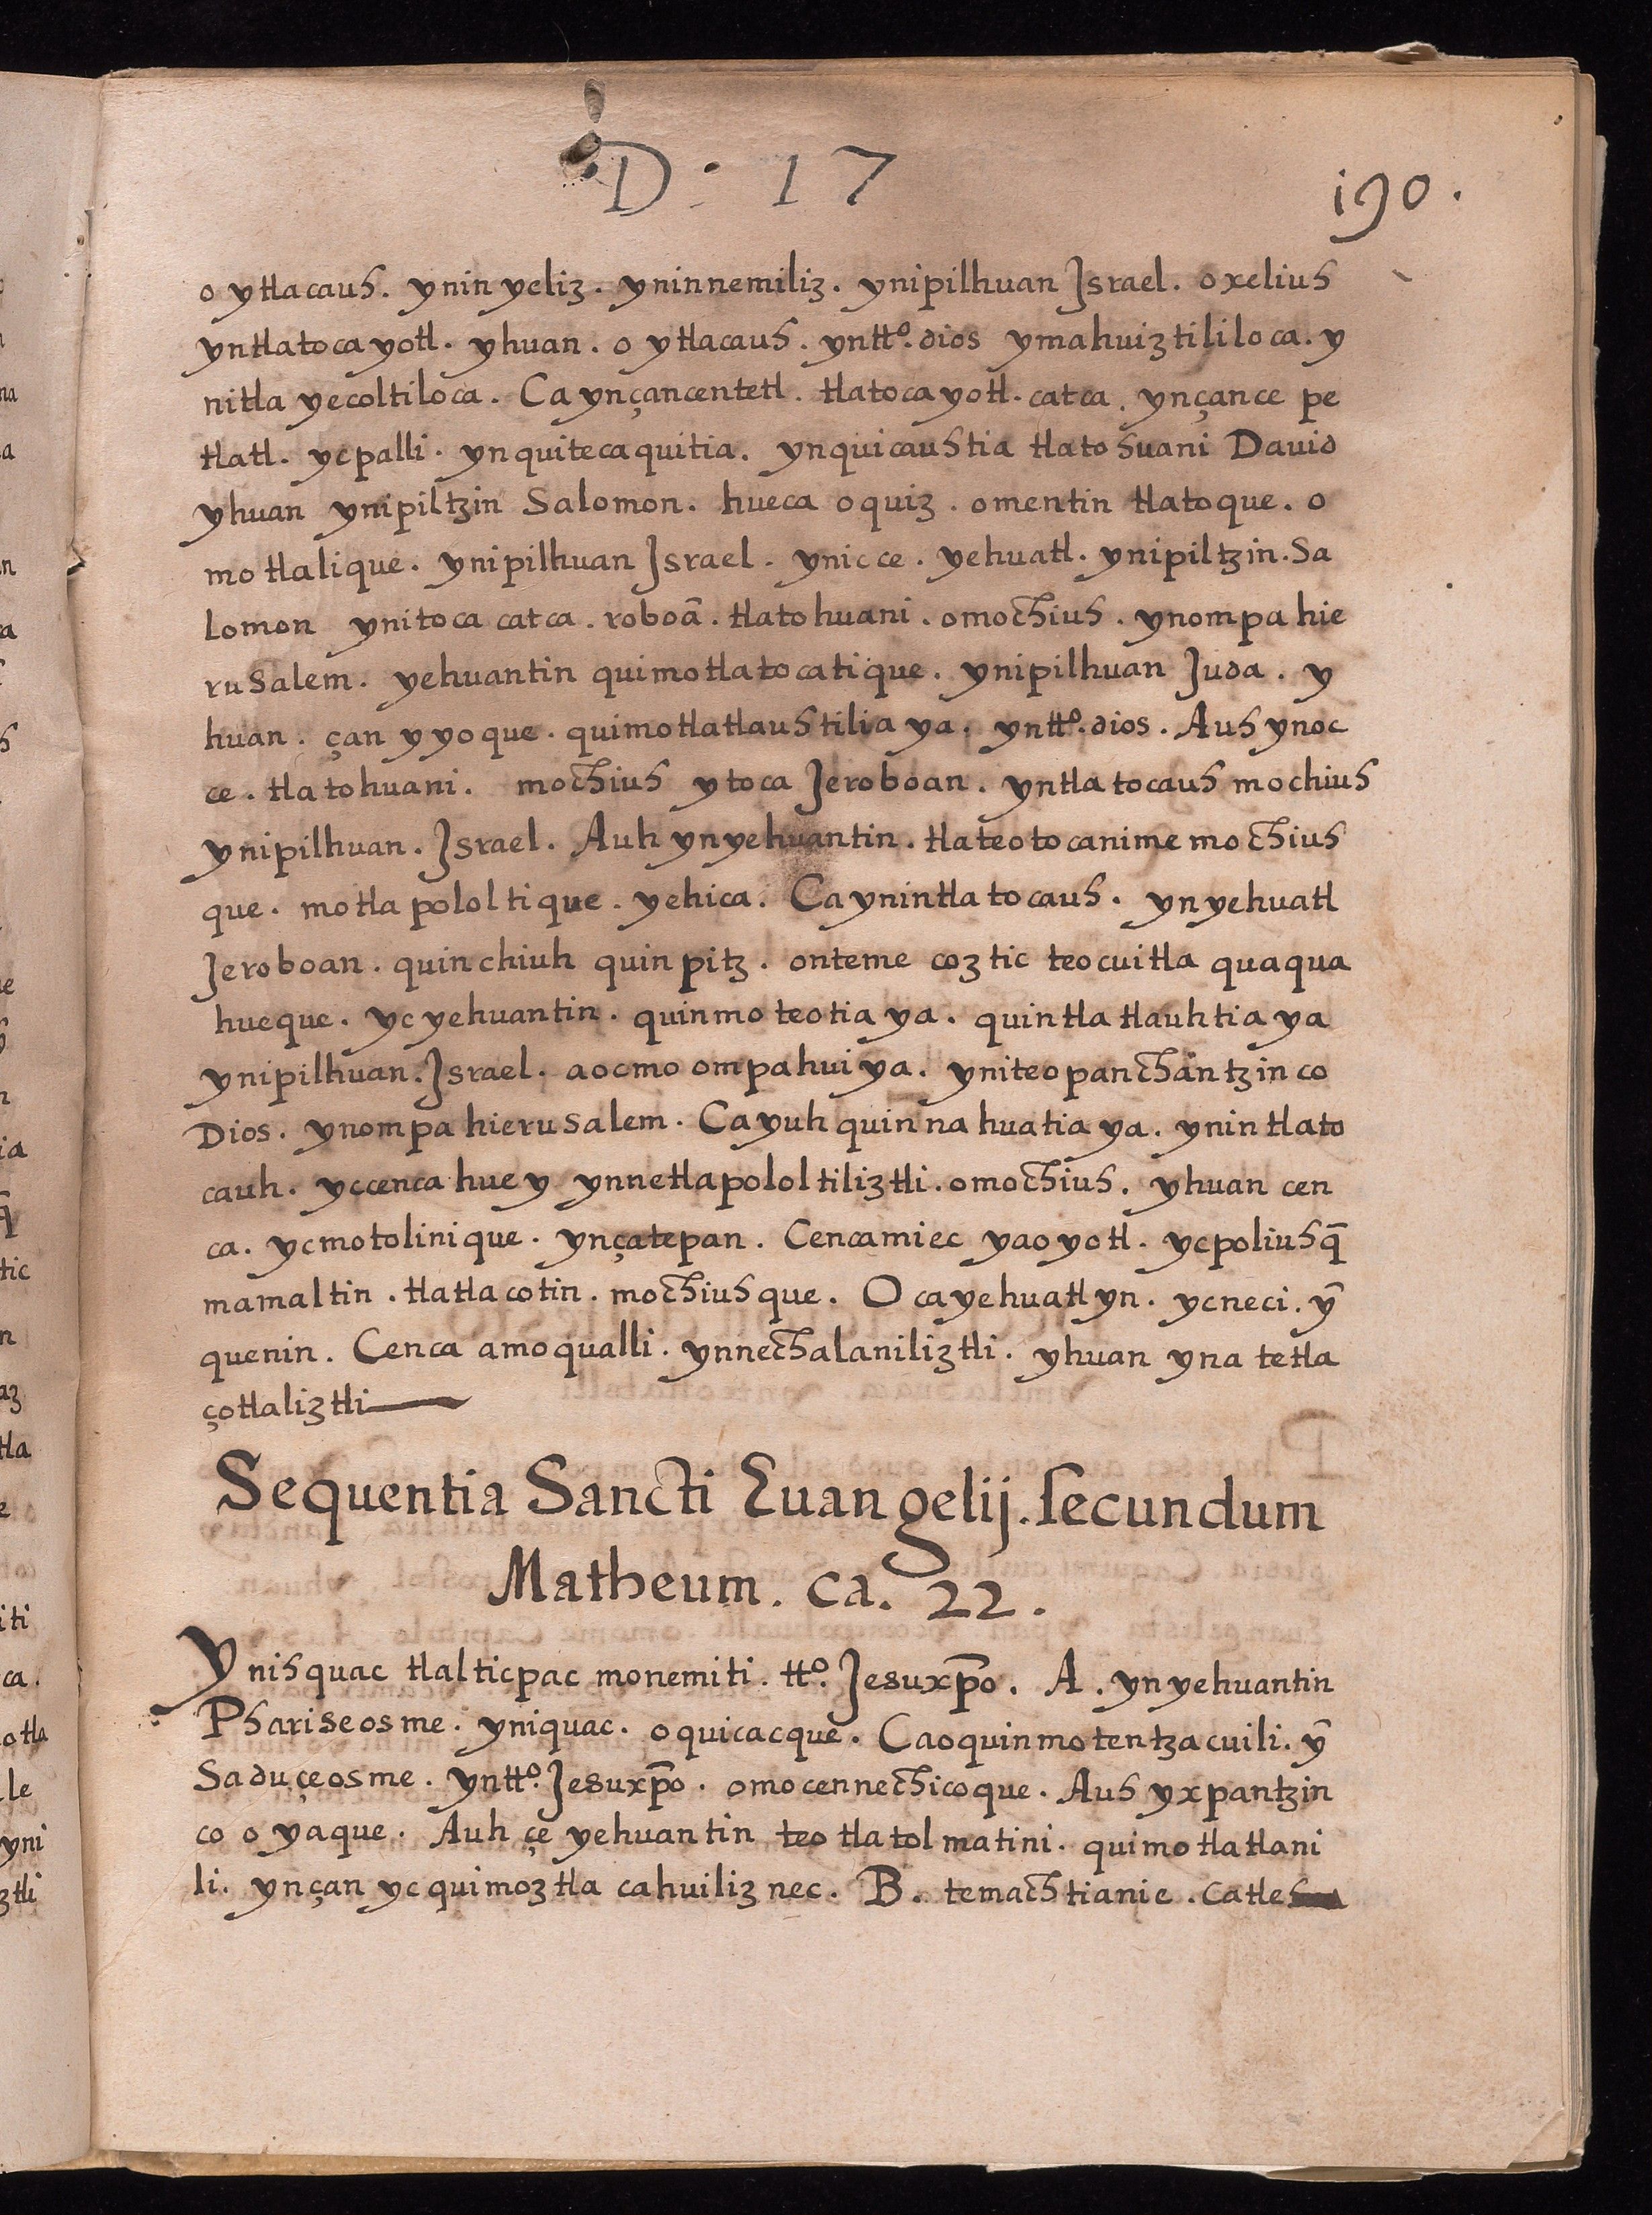 D: 17
i90.
o ytlacauh. ynin yeliz. yninnemiliz. ynipilhuan Israel. oxeliuh
yntlatocayotl. yhuan. o ytlacauh. yntt.º dios ymahuiztililoca. y
nitla yecoltiloca. Ca ynçancentetl. tlatocayotl. catca. ynçance pe
tlatl. ycpalli. ynquitecaquitia. ynquicauhtia tlatohuani Dauid
yhuan ynipiltzin Salomon. hueca oquiz. omentin tlatoque. o
motlalique. ynipilhuan Israel. ynic ce. yehuatl. ynipiltzin. Sa
lomon ynitoca catca. roboã. tlatohuani. omochiuh. ynompa hie
rusalem. yehuantin quimotlatocatique. ynipilhuan Juda. y
huan. çan yyoque. quimotlatlauhtiliaya. yntt.º dios. Auh ynoc
ce. tlatohuani. mochiuh ytoca Jeroboan. yntlatocauh mochiuh
ynipilhuan. Israel. Auh ynyehuantin. tlateotocanime mochiuh
que. motlapololtique. yehica. Caynintlatocauh. ynyehuatl
Jeroboan. quinchiuh quinpitz. onteme coztic teocuitla quaqua
hueque. ycyehuantin. quinmoteotiaya. quintlatlauhtiaya
ynipilhuan. Israel. aocmo ompahuiya. yniteopanchantzinco
Dios. ynompahierusalem. Cayuh quinnahuatiaya. ynintlato
cauh. yccenca huey ynnetlapololtiliztli. omochiuh. yhuan cen
ca. ycmotolinique. ynçatepan. Cencamiec yaoyotl. ycpoliuhq̃
mamaltin. tlatlacotin. mochiuhque. O cayehuatlyn. ycneci. ỹ
quenin. Cenca amoqualli. ynnechalaniliztli. yhuan yna tetla
çotlaliztli
Sequentia Sancti Euangelij. secundum
Matheum. ca. 22.
Ynihquac tlalticpac monemiti. tt.º Jesuxp̃o. A. ynyehuantin
Phariseosme. yniquac. oquicacque. Caoquinmotentzacuili. ỹ
Saduçeosme. yntt.º Jesuxp̃o. omocennechicoque. Auh yxpantzin
co o yaque. Auh çe yehuantin teotlatolmatini. quimotlatlani
li. ynçan ycquimoztlacahuiliznec. B. temachtianie. catleh